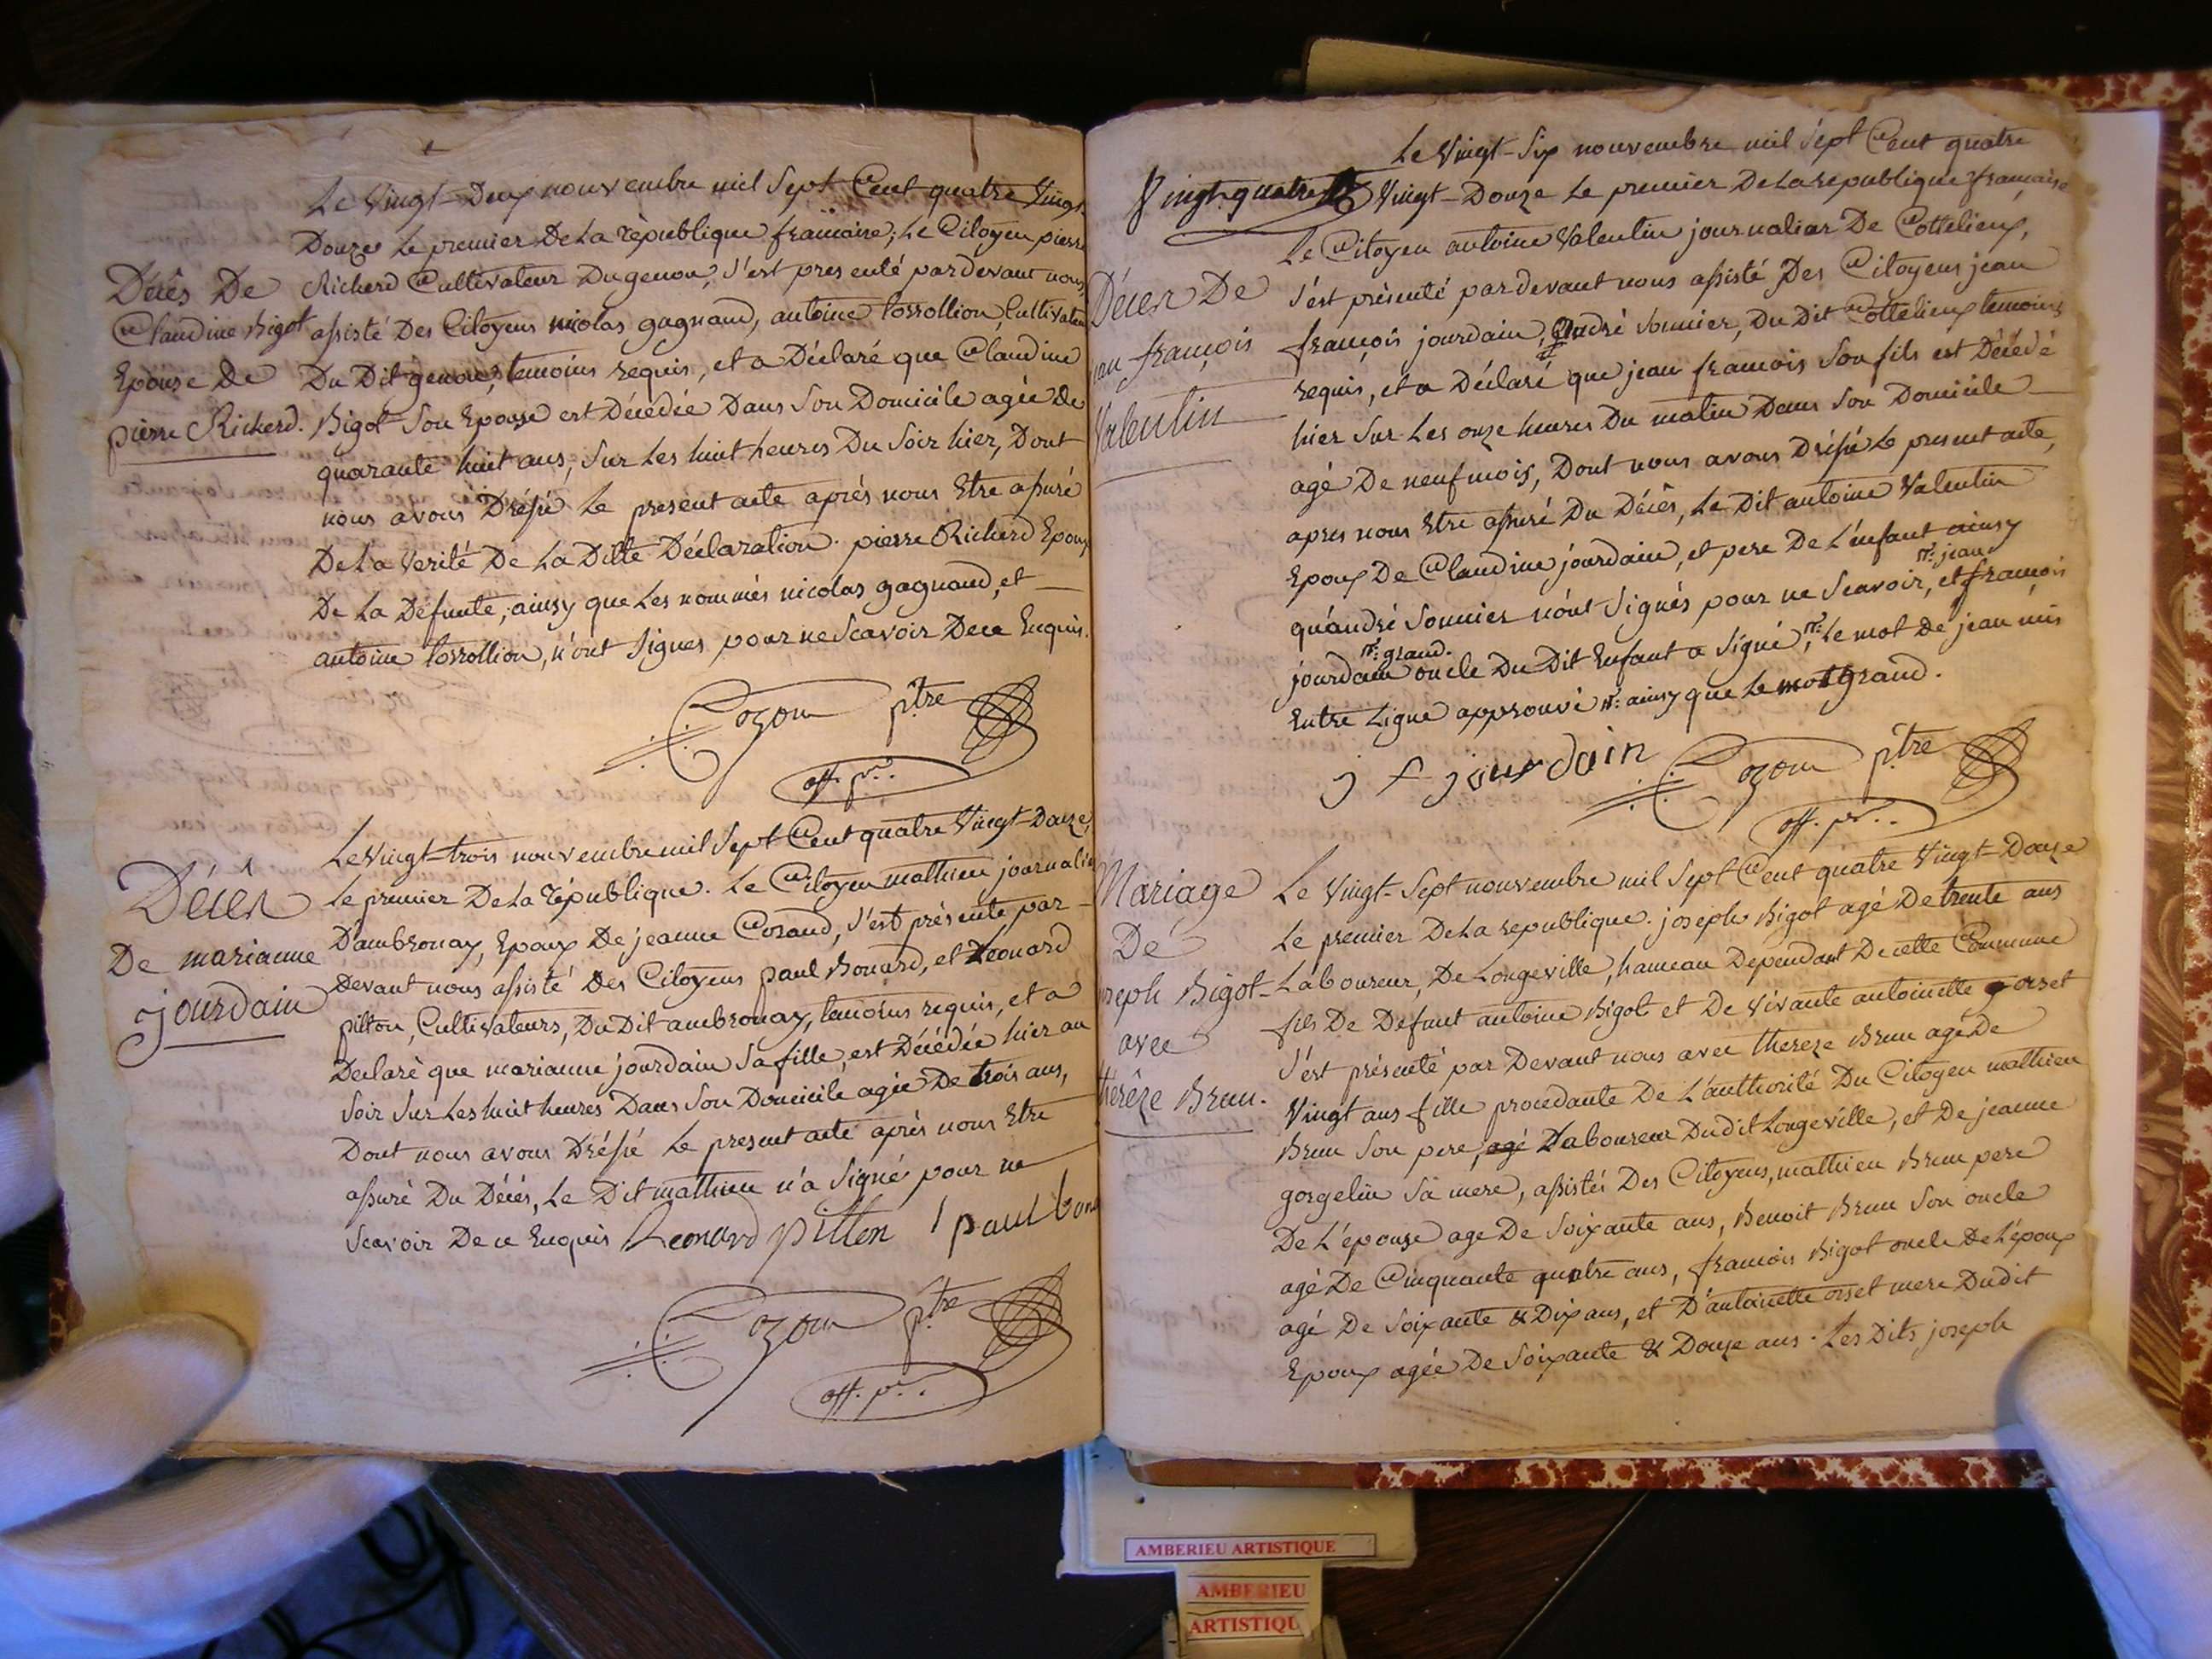 Le Vingt-Deux nouvembre mil Sept Cent quatre Vingt
Douze le premier De La république française; Le Citoyen pierre
Richerd Cultivateur Du genou, s'est presenté pardevant nous
assisté Des Citoyens nicolas gagnaud, antoine Cultivateurs
Du Dit genou, temoins requis, et a Déclaré que Claudine
Bigot Son Epouse est Décedée Dans Son Domicile agée de
quarante huit ans, Sur Les huit heures Du Soir hier, Dont
nous avons Dréssé Le present acte aprés nous Etre assuré
De La Verité De La Ditte Déclaration. pierre Richerd Epoux
De La Défunte, ainsy que Les nommés nicolas gagnaud, et
antoine n'ont Signés pour ne Scavoir De ce Enquis.
Décês De
Claudine Bigot
Epouse De
pierre Richerd.
Cozon ptre
off. p..
Le Vingt-trois nouvembre mil Sept Cent quatre Vingt-Douze,
Le premier De La république. Le Citoyen mathieu journalier
D'ambronay, Epoux De jeanne Cozand, s'est présenté par
devant nous assisté Des Citoyens paul Bonard, et Leonard
pitton, Cultivateurs, Du Dit ambronay, temoins requis, et a
Declaré que marianne jourdain Sa fille, est Décédée hier au
Soir Sur Les huit heures Dans Son Domicile agée De trois ans,
Dont nous avons Dréssé Le present acte aprés nous Etre
assuré Du Décés, Le Dit mathieu n'a Signé pour ne
Scavoir De ce Enquis Leonard pitton paul bona
Décês
De marianne
jourdain
Cozon ptre
off. p..
Vingt-quatre
Le Vingt-Six nouvembre mil Sept Cent quatre
Vingt-Douze Le premier De La republique française
Le Citoyen antoine Valentin journalier De Cottelieux,
s'est présenté pardevant nous assisté Des Citoyens jean
françois jourdain, André Sonnier, Du Dit Cottelieux temoins
requis, et a Déclaré que jean françois Son fils est Décédé
hier Sur Les onze heures Du matin Dans Son Domicile
agé De neuf mois, Dont nous avons Dréssé Le present acte,
apres nous Etre assuré Du Décês, Le Dit antoine Valentin
Epoux De Claudine jourdain, et pere De L'enfant ainsy
qu'andré Sonnier n'ont Signés pour ne Scavoir, et jean françois
jourdain grand oncle Du Dit Enfant a Signé, Le mot De jean mis
Entre Ligne approuvé ainsy que Le mot grand.
Décês De
jean françois
Valentin
j f jourdain Cozon ptre
off. p..
Mariage
De
joseph Bigot
avec
thérêze Brun.
Le Vingt-Sept nouvembre mil Sept Cent quatre Vingt-Douze
Le premier De La republique. joseph Bigot agé De trente ans
Laboureur, De Longeville, hameau Dependant De cette Commune
fils De Defunt antoine Bigot et De Vivante antoinette orset
s'est présenté par Devant nous avec thereze Brun age De
Vingt ans fille procedante De L'authorité Du Citoyen mathieu
Brun Son pere, agé Laboureur Dudit Longeville, et De jeanne
gorgelin Sa mere, assistés Des Citoyens, mathieu Brun pere
De L'épouse age De Soixante ans, Benoit Brun Son oncle
agé De Cinquante quatre ans, françois Bigot oncle De L'époux
agé De Soixante & Dix ans, et D'antoinette orset mere Dudit
Epoux agée De Soixante & Douze ans. Les Dits joseph
AMBERIEU ARTISTIQUE
AMBERIEU
ARTISTIQU